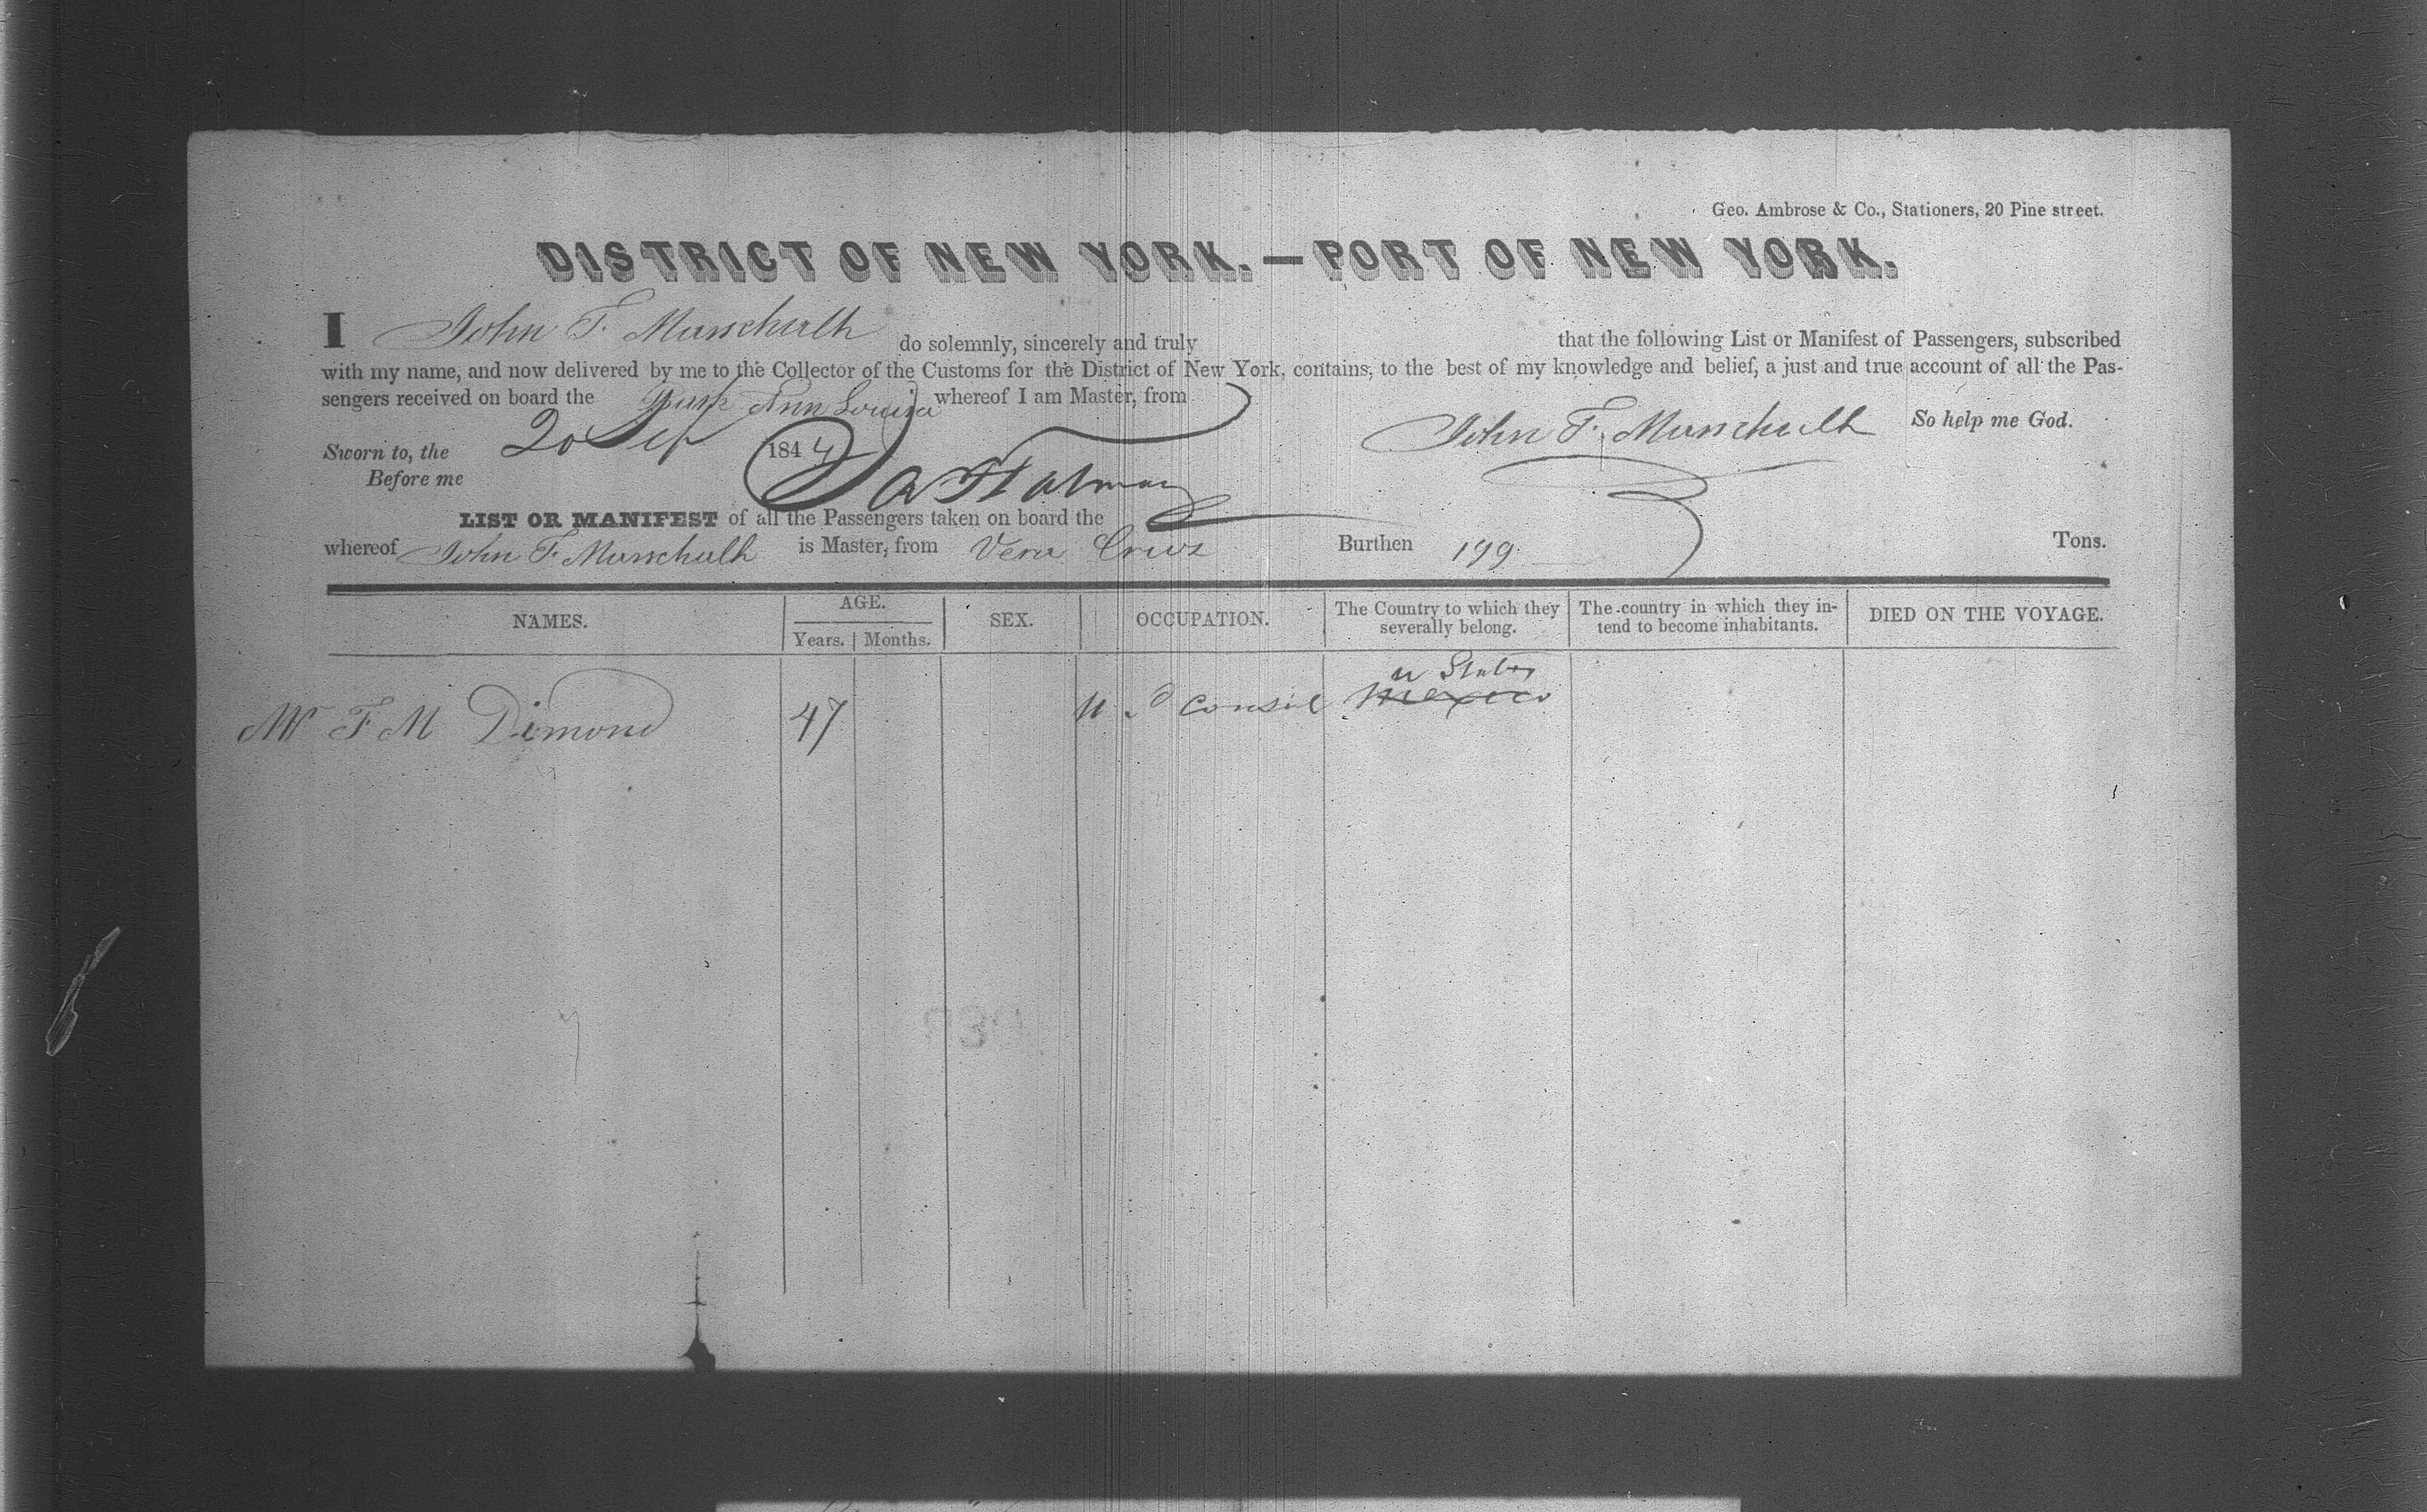 Geo. Ambrose & Co., Stationers, 20 Pine street.
DISTRICT OF NEW YORK.—PORT OF NEW YORK.
I John F. Munchulk do solemnly, sincerely and truly that the following List or Manifest of Passengers, subscribed
with my name, and now delivered by me to the Collector of the Customs for the District of New York, contains, to the best of my knowledge and belief, a just and true account of all the Pas-
sengers received on board the Bark Ann Louisa whereof I am Master, from
John F. Munchulk So help me God.
Sworn to, the 20 Sep 1844
Before me
LIST OR MANIFEST of all the Passengers taken on board the
whereof John F. Munchulk is Master, from Vera Cruz Burthen 199 Tons.
NAMES. AGE. SEX. OCCUPATION. The Country to which they severally belong. The country in which they in-tend to become inhabitants. DIED ON THE VOYAGE.
Years. Months.
U States
Mr F M Dimond 47 U S Consul Mexico